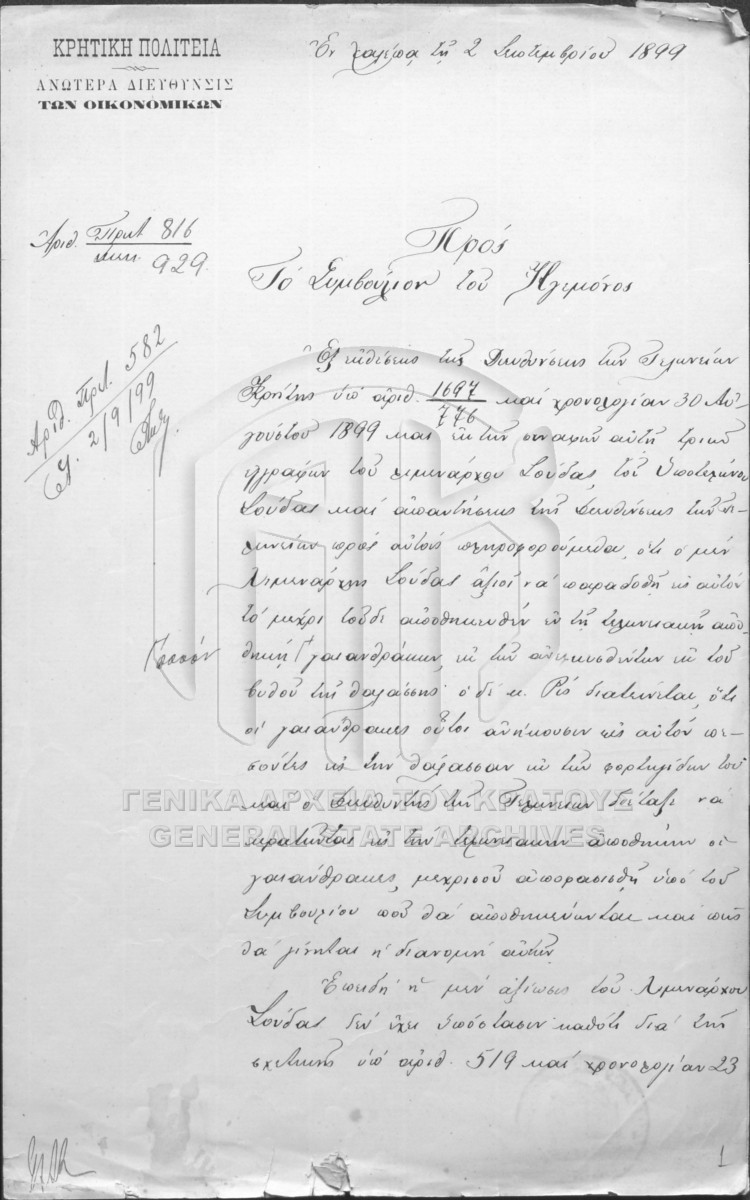 ΚΡΗΤΙΚΗ ΠΟΛΙΤΕΙΑ
ΑΝΩΤΕΡΑ ΔΙΕΥΘΥΝΣΙΣ
ΤΩΝ ΟΙΚΟΝΟΜΙΚΩΝ
Ἐν Χαλέπᾳ τῇ 2 Σεπτεμβρίου 1899
Ἀριθ. Πρωτ. 816
Διεκ. 929.
Ἀριθ. Πρωτ. 582
2/9/99
Πρός
Τό Συμβούλιον τοῦ Ἡγεμόνος
Ἐξ ἐκθέσεως τῆς Διευθύνσεως τῶν Τελωνείων
Κρήτης ὑπό ἀριθ. 1697/776 καί χρονολογίαν 30 Αὐ-
γούστου 1899 καί ἐκ τῶν συναφῶν αὐτῇ τριῶν
ἐγγράφων τοῦ Λιμενάρχου Σούδας, τοῦ Ὑποτελώνου
Σούδας καί ἀπαντήσεως τῆς Διευθύνσεως τῶν Τε-
λωνείων πρός αὐτούς πληροφορούμεθα, ὅτι ὁ μέν
Λιμενάρχης Σούδας ἀξιοῖ νά παραδοθῇ εἰς αὐτόν
τό μέχρι τοῦδε ἀποθηκευθέν ἐν τῇ τελωνειακῇ ἀπο-
θήκῃ γαιανθράκων, ἐκ τῶν ἀνελκυσθέντων ἐκ τοῦ
ποσόν
βυθοῦ τῆς θαλάσσης· ὁ δέ κ. Ρίς διατείνεται, ὅτι
οἱ γαιάνθρακες οὗτοι ἀνήκουσιν εἰς αὐτόν πε-
σόντες εἰς τήν θάλασσαν ἐκ τῶν φορτηγίδων του
καί ὁ Διευθυντής τῶν Τελωνείων διέταξε νά
κρατῶνται εἰς τήν τελωνειακήν ἀποθήκην οἱ
γαιάνθρακες, μέχρισοῦ ἀποφασισθῇ ὑπό τοῦ
Συμβουλίου ποῦ θά ἀποθηκεύωνται καί πῶς
θά γίνηται ἡ διανομή αὐτῶν.
Ἐπειδή ἡ μέν ἀξίωσις τοῦ Λιμενάρχου
Σούδας δέν ἔχει ὑπόστασιν καθότι διά τῆς
σχετικῆς ὑπό ἀριθ. 519 καί χρονολογίαν 23
1
ΓΕΝΙΚΑ ΑΡΧΕΙΑ ΤΟΥ ΚΡΑΤΟΥΣ
GENERAL STATE ARCHIVES